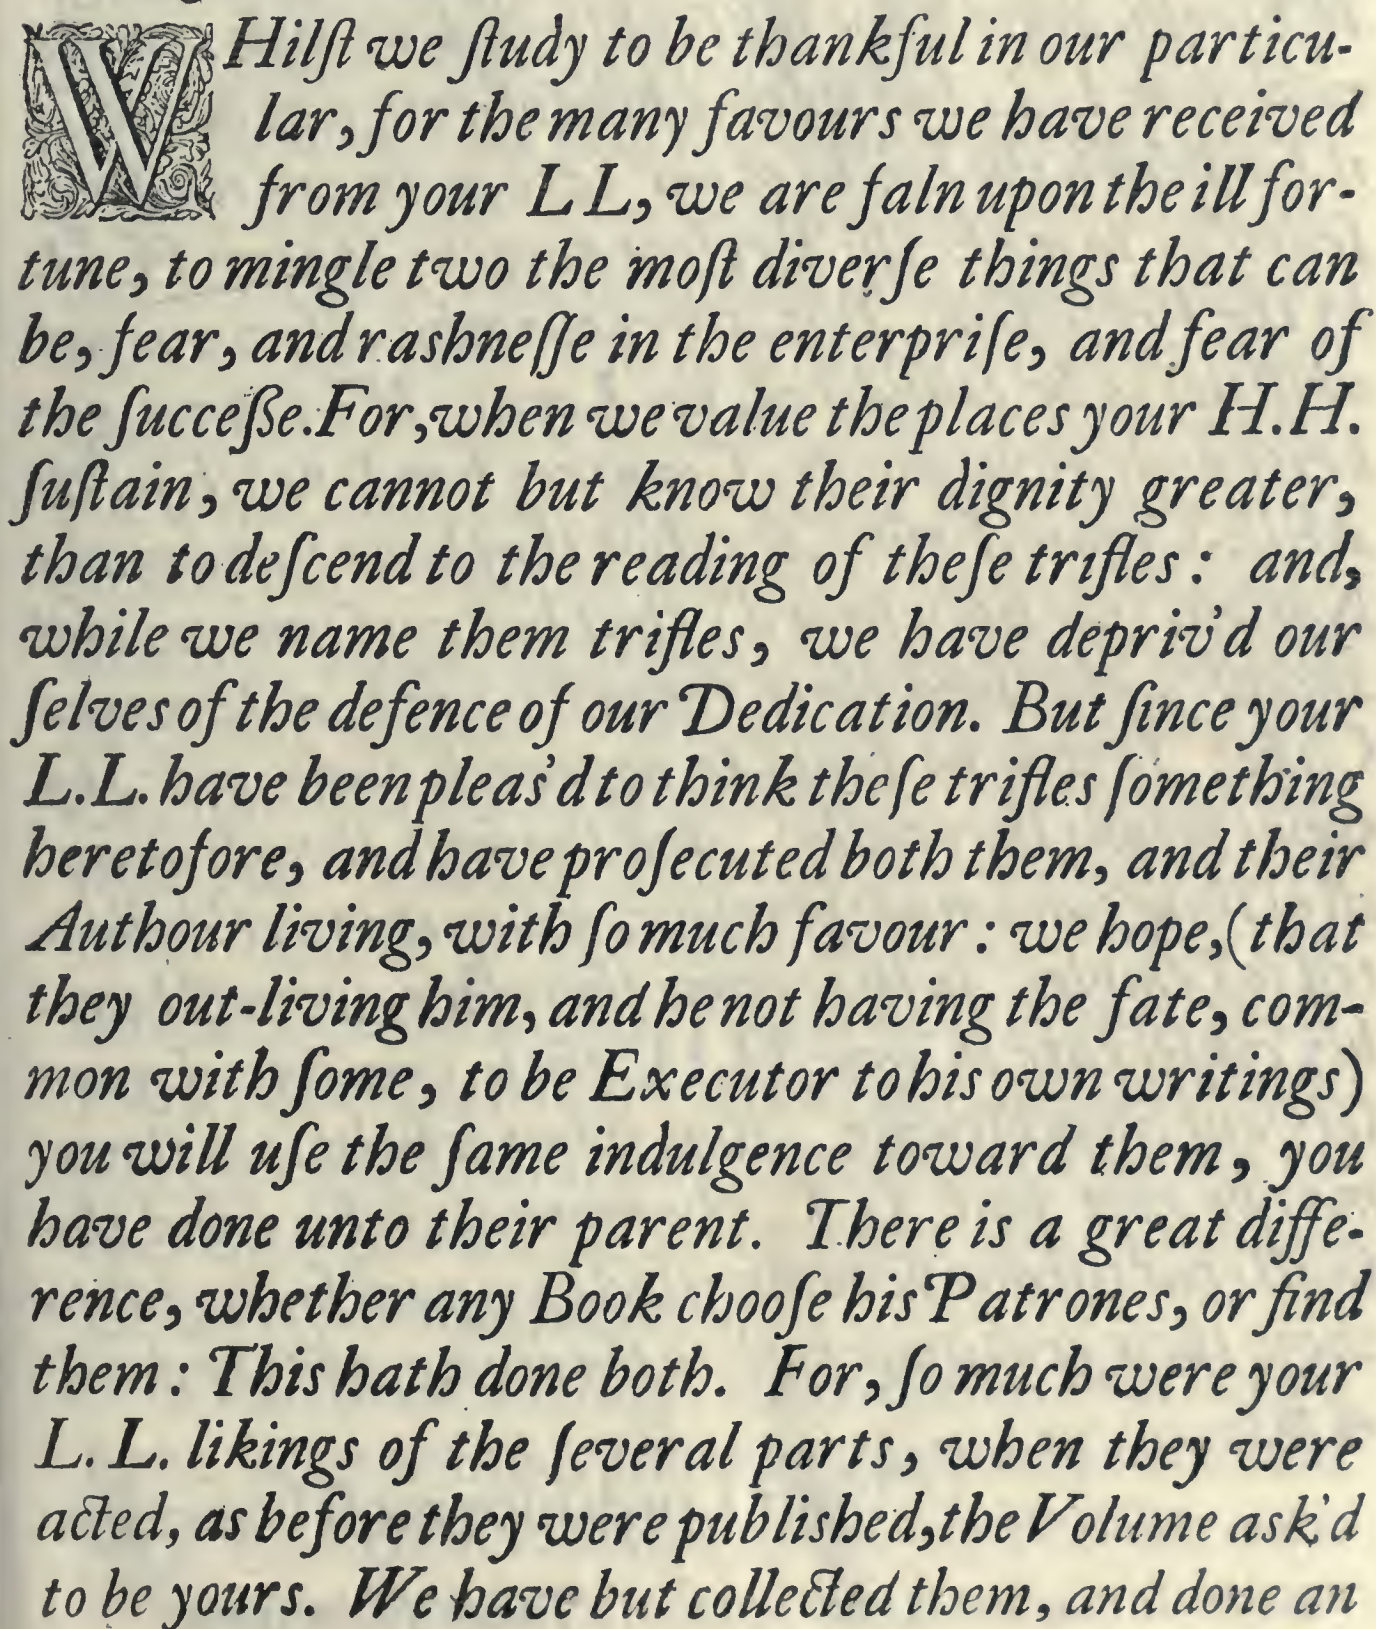 WHilſt we ſtudy to be thankful in our particu-
lar, for the many favours we have received
from your L L, we are faln upon the ill for-
tune, to mingle two the moſt diverſe things that can
be, fear, and rashneſſe in the enterpriſe, and fear of
the ſucceſſe. For, when we value the places your H.H.
ſuſtain, we cannot but know their dignity greater,
than to deſcend to the reading of theſe trifles: and,
while we name them trifles, we have depriv'd our
ſelves of the defence of our Dedication. But ſince your
L.L. have been pleas'd to think theſe trifles ſomething
heretofore, and have proſecuted both them, and their
Authour living, with ſo much favour: we hope, (that
they out-living him, and he not having the fate, com-
mon with ſome, to be Executor to his own writings)
you will uſe the ſame indulgence toward them, you
have done unto their parent. There is a great diffe-
rence, whether any Book chooſe his Patrones, or find
them: This hath done both. For, ſo much were your
L. L. likings of the ſeveral parts, when they were
acted, as before they were published, the Volume ask'd
to be yours. We have but collected them, and done an